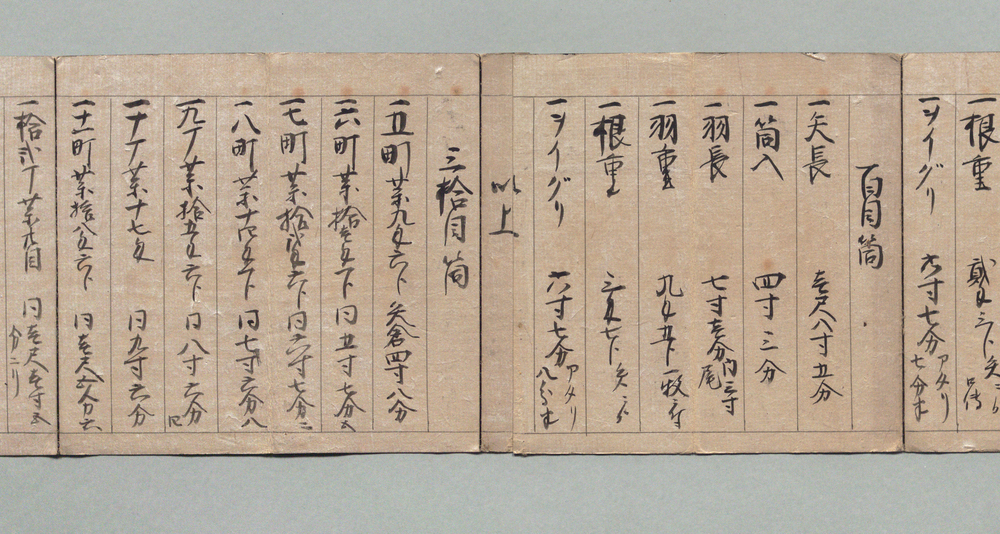 一根重
一シイグリ 六寸七分 アタリ 七分半
百目筒
一矢長 壱尺八寸五分
一筒入 四寸三分
一羽長 七寸壱分 内三寸尾
一羽重 九匁五分 一枚ニ付
一根重 三匁七分
一シイグリ 六寸七分 アタリ 八分半
以上
三拾目筒
一五町 薬九匁六分 矢倉四寸八分
一六町 薬拾壱匁下 同五寸七分五
一七町 薬拾弐匁六分 同六寸七分二
一八町 薬十四匁下 同七寸六分八
一九丁 薬拾五匁六分 同八寸六分
一十丁 薬十七匁 同九寸六分
一十一町 薬拾八匁六分 同壱尺
一拾弐丁 薬廿目 同壱尺壱寸五分二リ